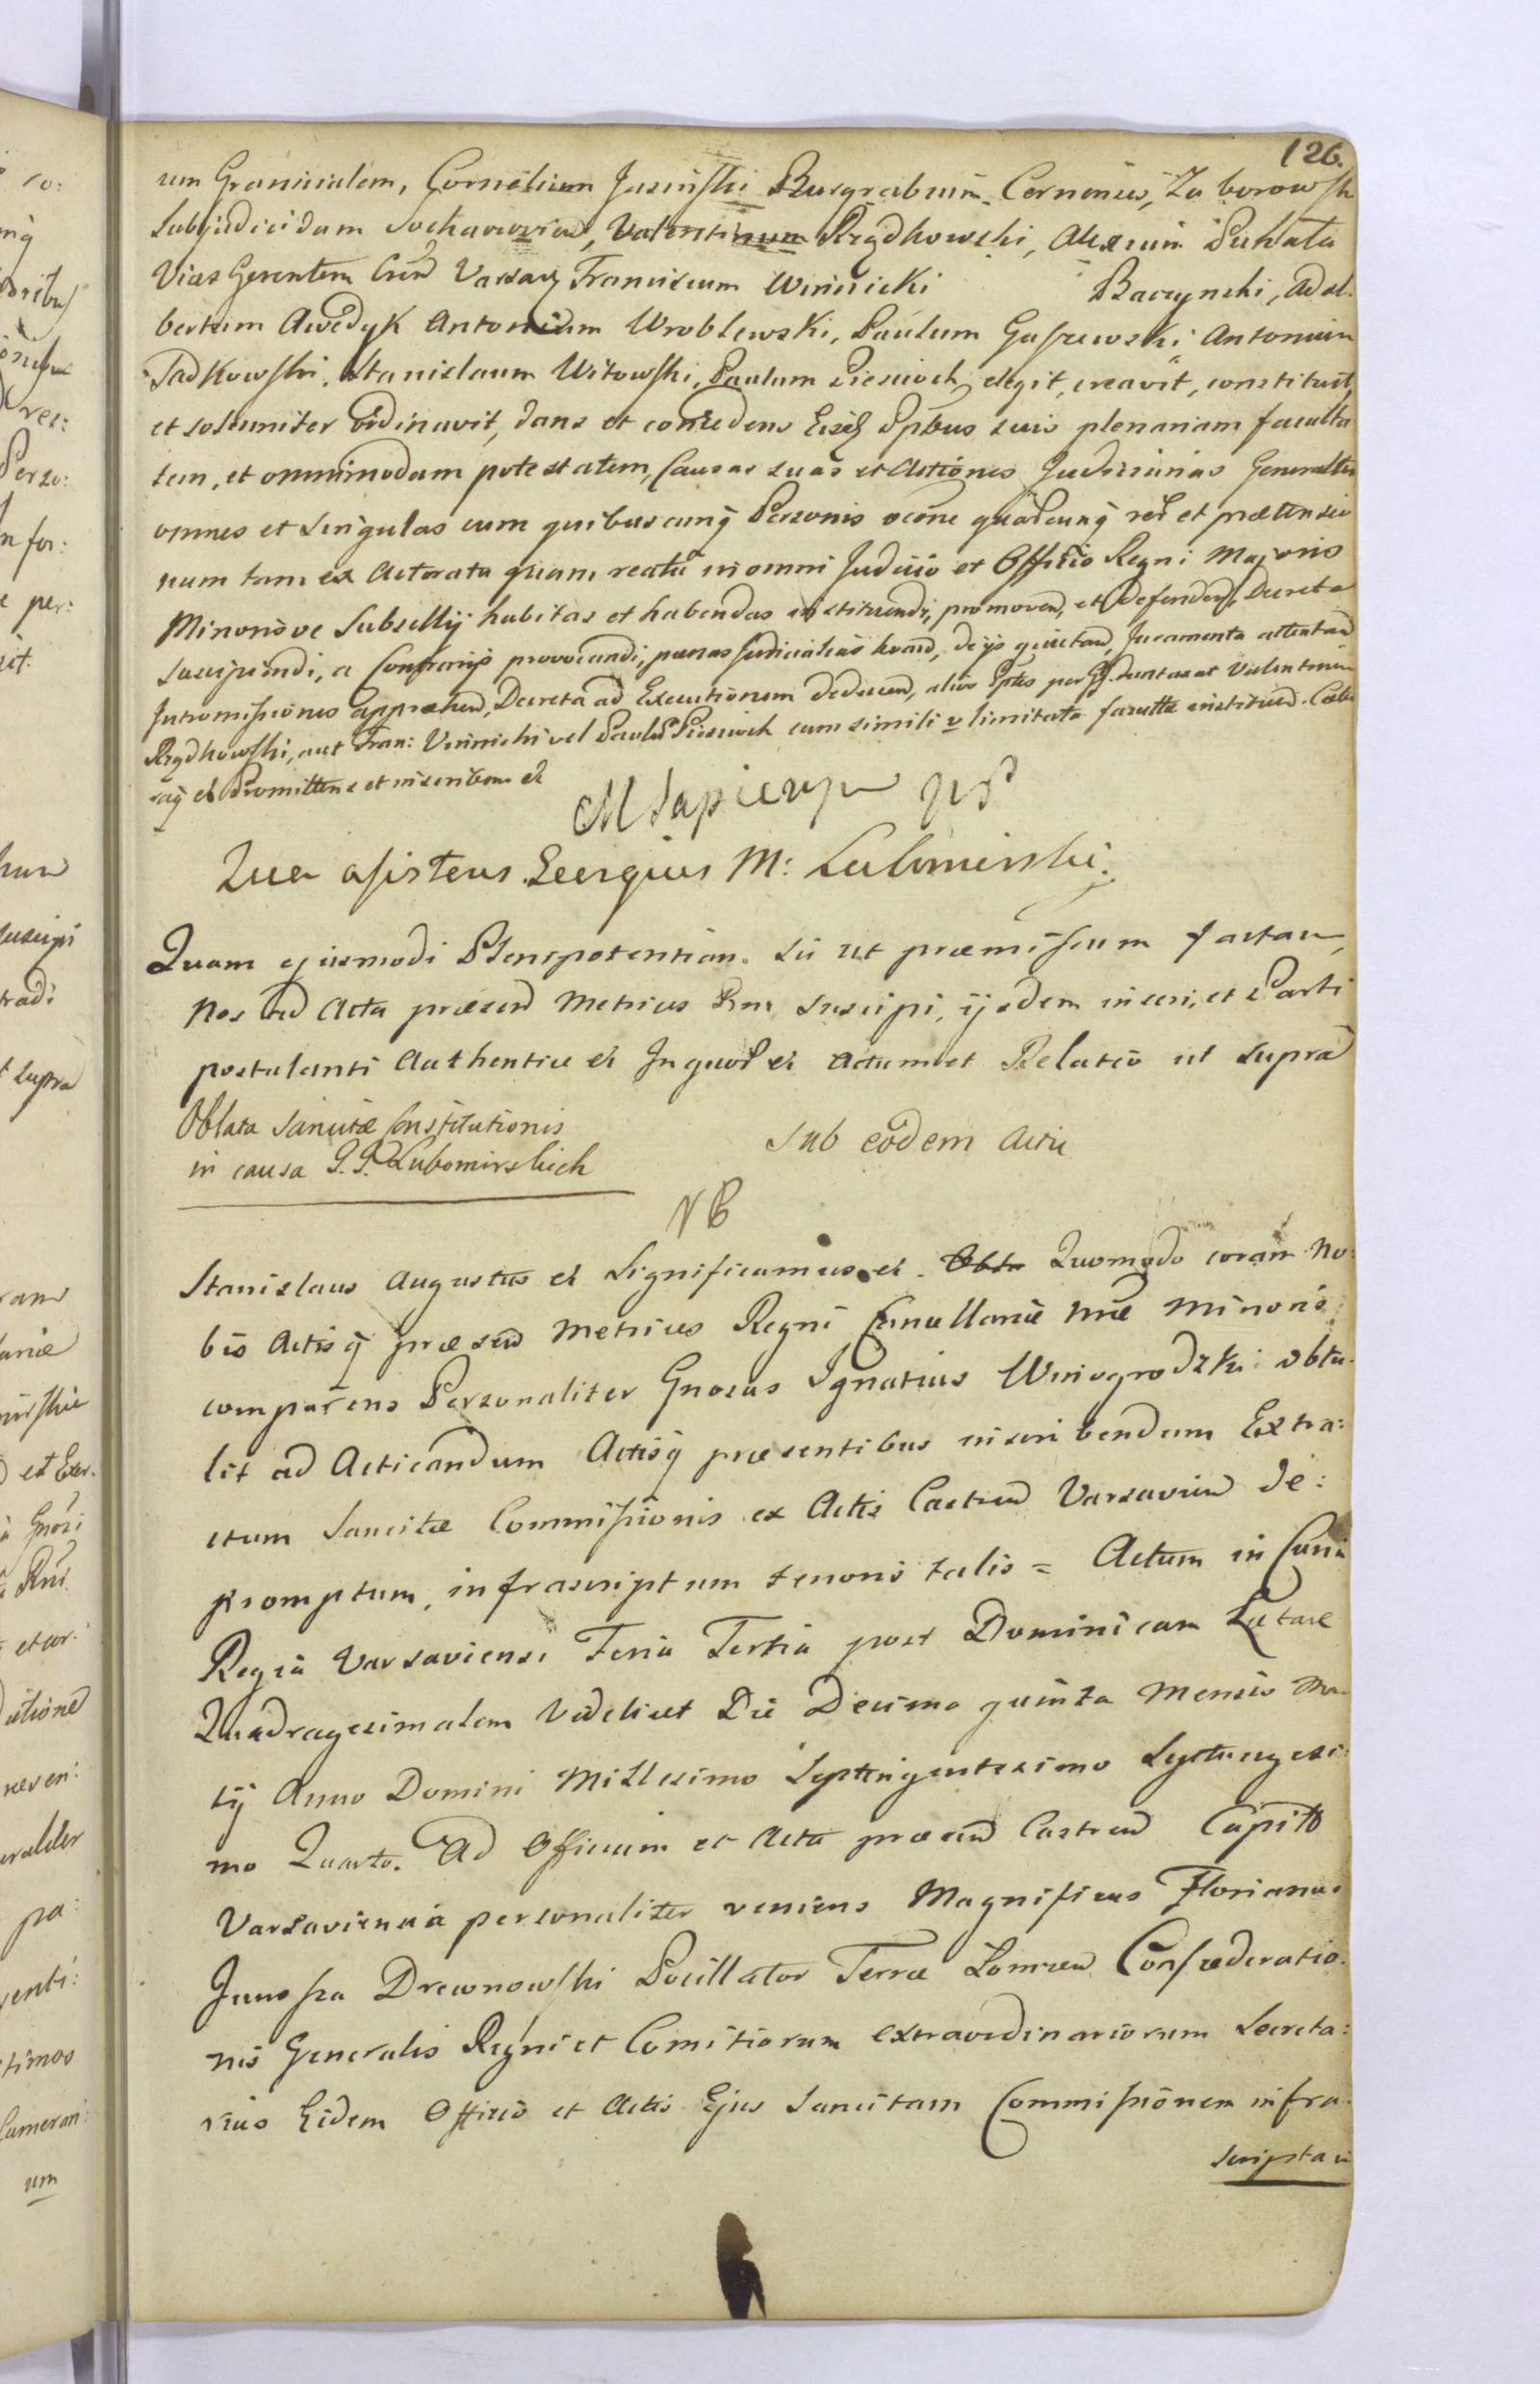 126.
um Granicialem, Cornelium Jasinski Burgrabium Cernensẽ, Zaborowski
Subjudicidam Sochavovien, Valentinum Rzydkowski, Alexium Puhata
Vices Gerentem Cren Varsav Franciscum Winnicki Baczynski, Adal:
bertum Awedyk Antonium Wroblewski, Paulum Gaszewski Antonium
Tadkowski, Stanislaum Witowski, Paulum Piescioch elegit, creavit, constituit,
et solemniter ordinavit, dans et concedens Eisdẽ Ppbus suis plenariam faculta
tem, et omnimodam potestatem, Causas suas et Actiones Judiciarias Generalter
omnes et singulas cum quibuscunq̃ Personis õcone quarcunq̃ rer et prætensio
num tam ex Actoratu quam reatu in omni Judicio et Officio Regni Majoris
Minorisve Subsellij habitas et habendas instituendi, promoven, et defenden, Decreta
suscipiendi, a Contrarijs provocandi, pænas Judicialias levan, de ijs quietan, Juramenta attentan
Intromissiones appræhen, Decreta ad Executionem deducen, alios Pptes per G. duntaxat Valentinum
Rzydkowski, aut Fran: Vinnicki vel Paulũ Piescioch cum simili v limitata facultte instituen. Cæte
raq̃ et Promittens et inscribens et
M Sapiezyna
Qua assistens Georgius M: Lubomirski.
Quam ejusmodi Plenipotentiam. sic ut præmissum factam,
Nos ad Acta præsen Metrices Rni suscipi, ijsdem inseri, et Parti
postulanti Authentice et In quor et Actum et Relatio ut supra
Oblata Sancitæ Constitutionis
in causa P.P. Lubomirskich
Sub eodem Actu
NB
Stanislaus Augustus et Significamus et. Obta Quomodo coram No:
bis Actisq̃ præsen Metrices Regni Cancellariæ Nræ Minoris
comparens Personaliter Gnosus Ignatius Winogrodzki obtu:
lit ad Acticandum Actisq̃ præsentibus inscribendum Extra:
ctum Sancitæ Commissionis ex Actis Castren Varsavien de:
promptum, infrascriptum tenoris talis = Actum in Curia
Regia Varsaviensi Feria Tertia post Dominicam Lætare
Quadragesimalem Videlicet Die Decima quinta Mensis Mar
tij Anno Domini Millesimo Septingentesimo Septuagesi:
mo Quarto. Ad Officium et Acta præsen Castren Capitl
Varsaviensia personaliter veniens Magnificus Florianus
Junosza Drewnowski Pocillator Terræ Lomzen Confæderatio:
nis Generalis Regni et Comitiorum extraordinariorum Secreta:
rius Eidem Officio et Actis Ejus Sancitam Commissionem infra:
scriptam